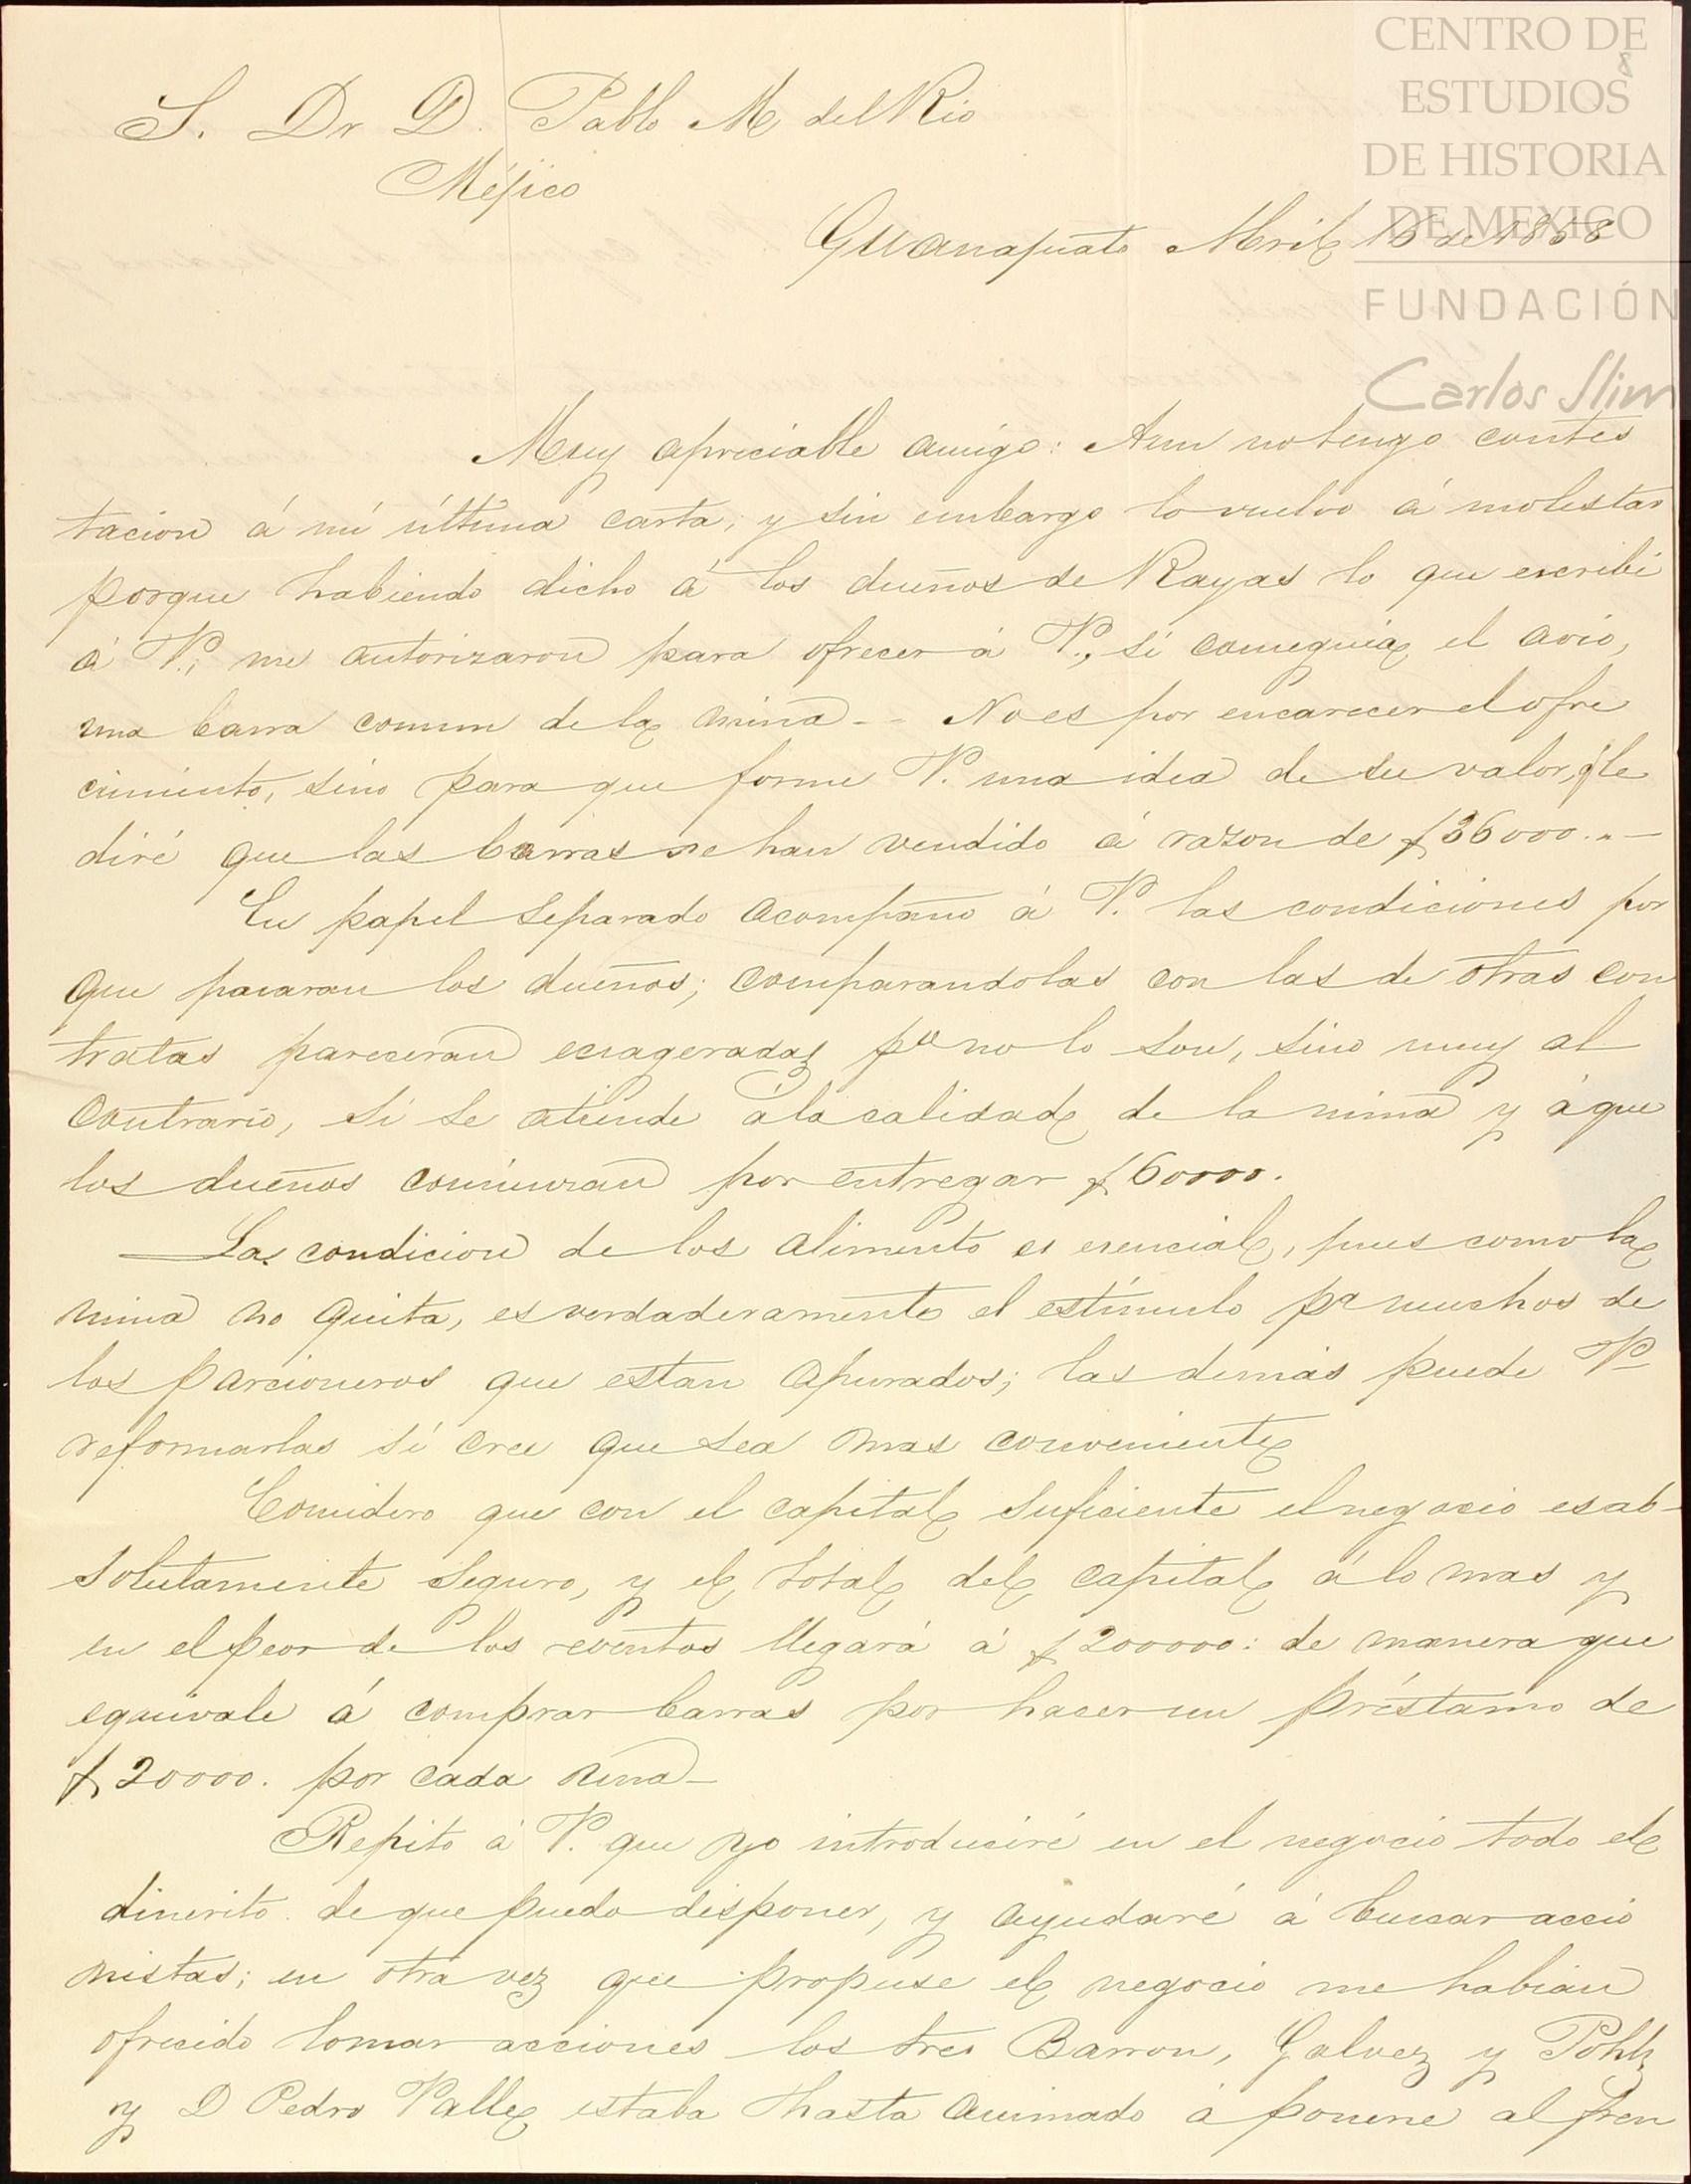 CENTRO DE
ESTUDIOS
DE HISTORIA
DE MEXICO
FUNDACIÓN
Carlos Slim
8
S. Dr D. Pablo M del Rio
Méjico
Guanajuato Abril de 1858
Muy apreciable amigo: Aun no tengo contes
tacion á mi última carta, y sin embargo lo vuelvo á molestar
porque habiendo dicho á los dueños de Rayas lo que escribi
á V., me autorizaron para ofrecer á V., si conseguia el avio,
una barra comun de la mina - - No es por encarecer el ofre
cimiento, sino para que forme V. una idea de su valor, q le
diré que las barras se han vendido á razon de $36000. " —
En papel separado acompaño á V. las condiciones por
que pasaran los dueños; comparandolas con las de otras con
tratas pareceran exageradas po no lo son, sino muy al
contrario, si se atiende á la calidad de la mina y á que
los dueños comienzan por entregar $60000.
La condicion de los alimentos es esencial, pues como la
mina no quita, es verdaderamente el estímulo pa muchos de
los parcioneros que estan apurados; las demás puede V
reformarlas si cree que sea mas conveniente
Considero que con el capital suficiente el negocio es ab-
solutamente seguro, y el total del capital á lo mas y
en el peor de los eventos llegará á $200000: de manera que
equivale á comprar barras por hacer un préstamo de
$20000. por cada una —
Repito á V. que yo introduciré en el negocio todo el
dinerito de que puedo disponer, y ayudaré á buscar accio
nistas; en otra vez que propuse el negocio me habian
ofrecido tomar acciones los tres Barron, Galvez y Pohls
y D Pedro Valle estaba hasta animado á ponerse al fren